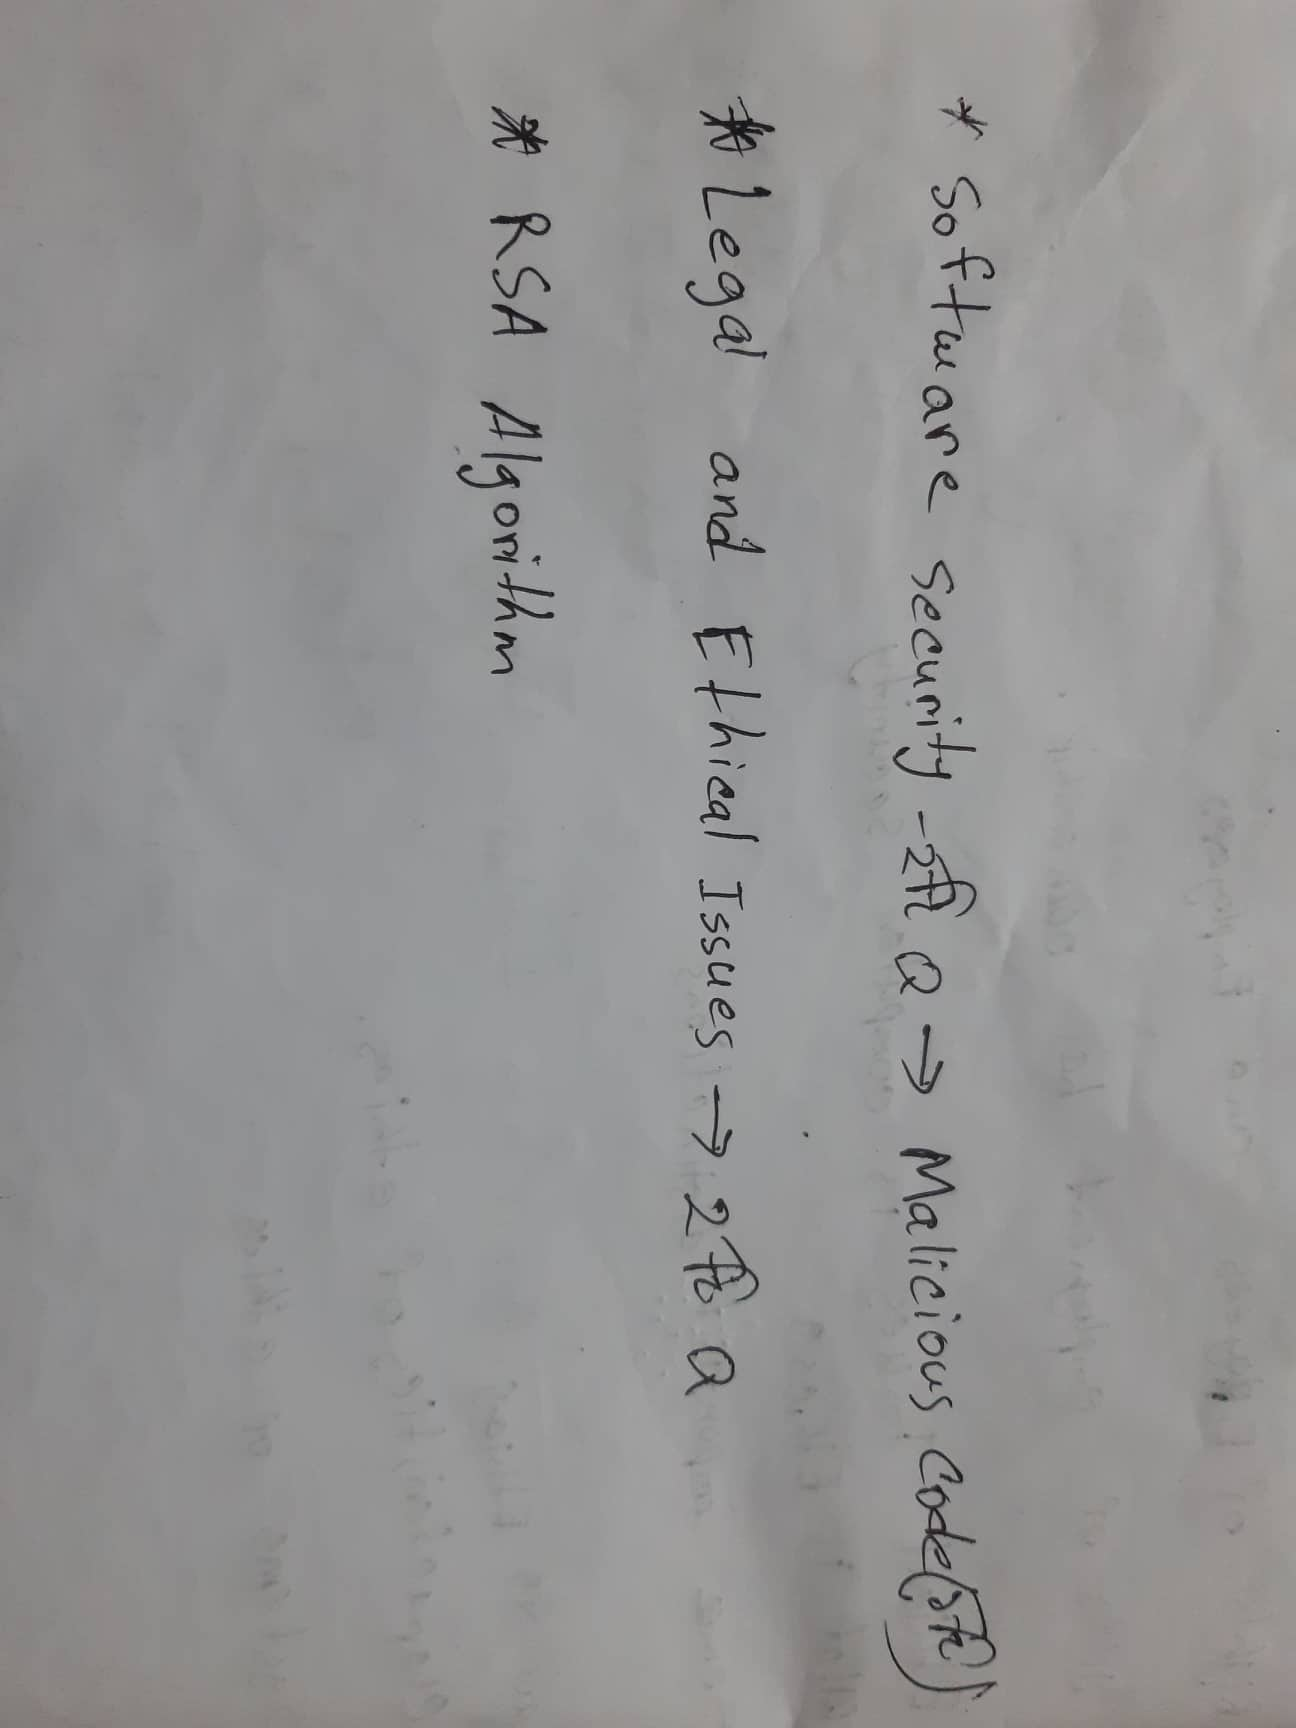 * Software security - 2টি Q → Malicious Code (১টি)
* Legal and Ethical Issues → 2টি Q
* RSA Algorithm